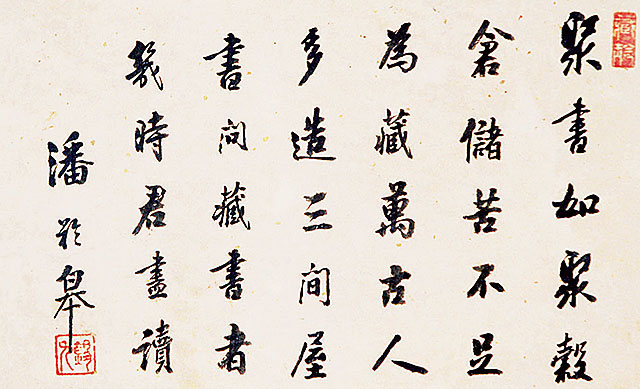 聚書如聚穀
倉儲苦不足
為藏萬古人
多造三間屋
書問藏書者
幾時君盡讀
潘齡皋
錫九